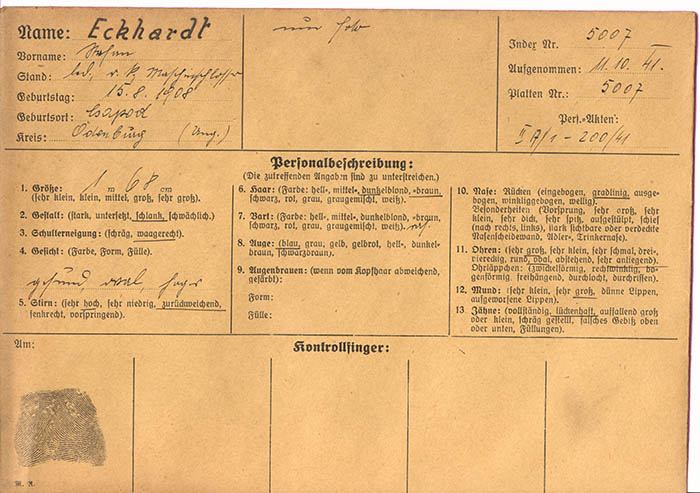 Name: Eckhardt
Vorname: Stefan
Stand: led, r. k. Maschinschlosser
Geburtstag: 15.8.1908
Geburtsort: Csapod
Kreis: Ödenburg (Ung.)
nur Foto
Index Nr. 5007
Aufgenommen: 11.10.41.
Platten Nr.: 5007
Pers.-Akten:
II A/1-200/41
Personalbeschreibung:
(Die zutreffenden Angaben sind zu unterstreichen.)
1. Größe: 1 m 68 cm
(sehr klein, klein, mittel, groß, sehr groß).
2. Gestalt: (stark, untersetzt, schlank, schwächlich).
3. Schulterneigung: (schräg, waagerecht).
4. Gesicht: (Farbe, Form, Fülle).
gesund, oval, hager
5. Stirn: (sehr hoch, sehr niedrig, zurückweichend,
senkrecht, vorspringend).
6. Haar: (Farbe: hell-, mittel-, dunkelblond, -braun,
schwarz, rot, grau, graugemischt, weiß).
7. Bart: (Farbe: hell-, mittel-, dunkelblond, -braun,
schwarz, rot, grau, graugemischt, weiß).
8. Auge: (blau, grau, gelb, gelbrot, hell-, dunkel-
braun, schwarzbraun).
9. Augenbrauen: (wenn vom Kopfhaar abweichend,
gefärbt):
Form:
Fülle:
10. Nase: Rücken (eingebogen, gradlinig, ausge-
bogen, winkliggebogen, wellig).
Besonderheiten (Vorsprung, sehr groß, sehr
klein, sehr dick, sehr spitz, ausgestülpt, schief
(nach rechts, links), stark sichtbare oder verdeckte
Nasenscheidewand, Adler-, Trinkernase).
11. Ohren: (sehr groß, sehr klein, sehr schmal, drei-,
viereckig, rund, oval, abstehend, sehr anliegend).
Ohrläppchen: (zwickelförmig, rechtwinklig, bo-
genförmig, freihängend, durchlocht, durchrissen).
12. Mund: (sehr klein, sehr groß, dünne Lippen,
aufgeworfene Lippen).
13 Zähne: (vollständig, lückenhaft, auffallend groß
oder klein, schräg gestellt, falsches Gebiß oben
oder unten, Füllungen).
Am:
Kontrollfinger:
M. R.